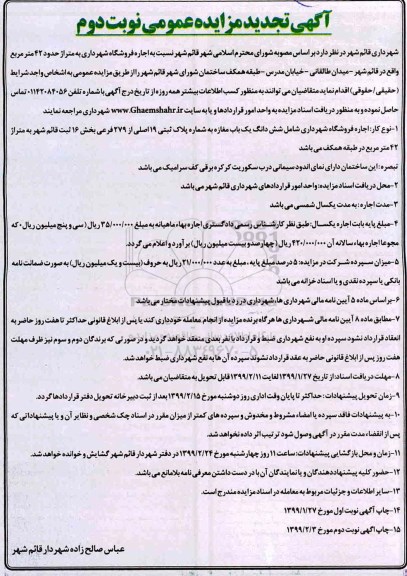 آگهی تجدید مزایده عمومی نوبت دوم
شهرداری قائم شهر در نظر دارد بر اساس مصوبه شورای محترم اسلامی شهر قائم شهر نسبت به اجاره فروشگاه شهرداری به متراژ حدود ۴۲ متر مربع
واقع در قائم شهر - میدان طالقانی - خیابان مدرس - طبقه همکف ساختمان شورای شهر قائم شهر را از طریق مزایده عمومی به اشخاص واجد شرایط
(حقیقی/حقوقی) اقدام نماید متقاضیان می توانند به منظور کسب اطلاعات بیشتر همه روزه از تاریخ درج آگهی با شماره تلفن ۰۱۱۴۲۰۸۴۰۵۶ تماس
حاصل نموده و به منظور دریافت اسناد مزایده به واحد امور قراردادها و یا به سایت www.Ghaemshahr.ir شهرداری مراجعه نمایند
۱-نوع کار: اجاره فروشگاه شهرداری شامل شش دانگ یک باب مغازه به شماره پلاک ثبتی ۱۹ اصلی از ۲۷۹ فرعی بخش ۱۶ ثبت قائم شهر به متراژ
۴۲ متر مربع در طبقه همکف می باشد
تبصره: این ساختمان دارای نمای اندود سیمانی درب سکوریت کرکره برقی کف سرامیک می باشد
۲-محل دریافت اسناد مزایده: واحد امور قراردادهای شهرداری قائم شهر می باشد
۳-مدت اجاره: به مدت یکسال شمسی می باشد
۴-مبلغ پایه بابت اجاره یکسال: طبق نظر کارشناس رسمی دادگستری اجاره بهاء ماهیانه به مبلغ ۳۵/۰۰۰/۰۰۰ ریال (سی و پنج میلیون ریال) که
مجموعا اجاره بهاء سالانه آن ۴۲۰/۰۰۰/۰۰۰ ریال (چهارصد و بیست میلیون ریال) برآورد و اعلام می گردد.
۵-میزان سپرده شرکت در مزایده: ۵ درصد مبلغ پایه، مبلغ به عدد ۲۱/۰۰۰/۰۰۰ ریال به حروف (بیست و یک میلیون ریال) به صورت ضمانت نامه
بانکی یا سپرده نقدی و یا اسناد خزانه می باشد
۶-بر اساس ماده ۵ آیین نامه مالی شهرداری ها، شهرداری در رد یا قبول پیشنهادات مختار می باشد
۷-مطابق ماده ۸ آیین نامه مالی شهرداری ها هرگاه برنده مزایده از انجام معامله خودداری کند یا پس از ابلاغ قانونی حداکثر تا هفت روز حاضر به
انعقاد قرارداد نشود سپرده او به نفع شهرداری ضبط و قرارداد با نفر بعدی منعقد خواهد گردید و در صورتی که برندگان دوم و سوم نیز ظرف مهلت
هفت روز پس از ابلاغ قانونی حاضر به عقد قرارداد نشوند سپرده آن ها به نفع شهرداری ضبط خواهد شد.
۸-مهلت دریافت اسناد از تاریخ ۱۳۹۹/۱/۲۷ لغایت ۱۳۹۹/۲/۱۱ قابل تحویل به متقاضیان می باشد.
۹-زمان تحویل پیشنهادات: حداکثر تا پایان وقت اداری روز دوشنبه مورخ ۱۳۹۹/۲/۱۵ بعد از ثبت دبیرخانه تحویل دفتر قراردادها گردد.
۱۰-به پیشنهادات فاقد سپرده یا امضاء مشروط و مخدوش و سپرده های کمتر از میزان مقرر در اسناد چک شخصی و نظایر آن و یا پیشنهاداتی که
پس از انقضاء مدت مقرر در آگهی وصول شود ترتیب اثر داده نخواهد شد.
۱۱-زمان و محل بازگشایی پیشنهادات: ساعت ۱۱ روز چهارشنبه مورخ ۱۳۹۹/۲/۲۴ در دفتر شهردار قائم شهر گشایش و خوانده خواهد شد.
۱۲-حضور کلیه پیشنهاددهندگان و یا نمایندگان آن با در دست داشتن معرفی نامه بلامانع می باشد.
۱۳-سایر اطلاعات و جزئیات مربوط به معامله در اسناد مزایده مندرج است.
۱۴-چاپ آگهی نوبت اول مورخ ۱۳۹۹/۱/۲۷
۱۵-چاپ آگهی نوبت دوم مورخ ۱۳۹۹/۲/۳
عباس صالح زاده شهردار قائم شهر